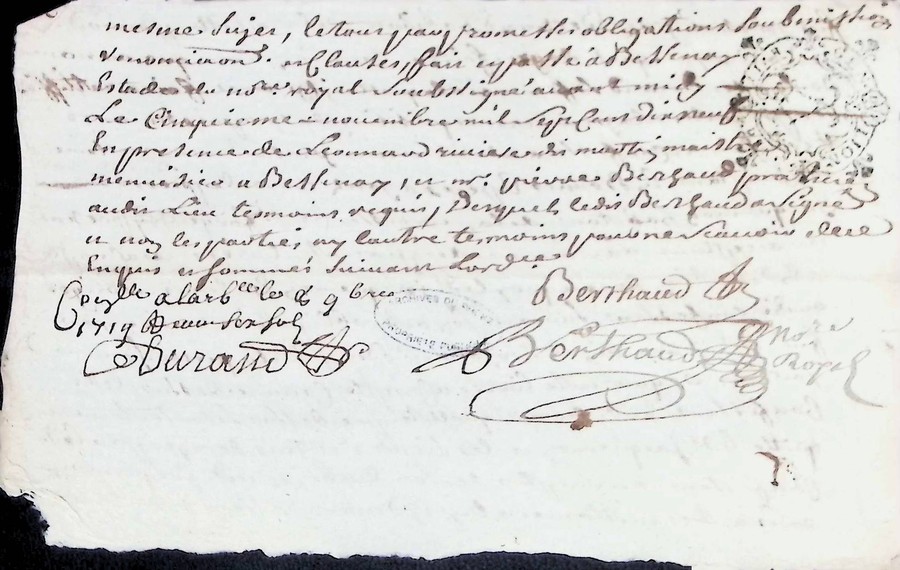 mesme sujet, le tous par promesses obligations soubmissions
renonciaons et Clauses, fait et passé à Bessenay
Estude du nore royal soubsigné avant midy
Le Cinquieme novembre mil sept Cens dix neuf
En presence de Leonnard riviere dit martin maistre
menuisier a Bessenay, et mr. pierre Berthaud praticien
audit Lieu temoins requis, Desquels ledit Berthaud a signé
et non les parties ny lautre temoins pour ne scavoir de ce
Enquis et sommés suivant Lordce
Berthaud
Conlle a larblle le 8 9bre
1719
Durand
Berthaud
Nore
Royal